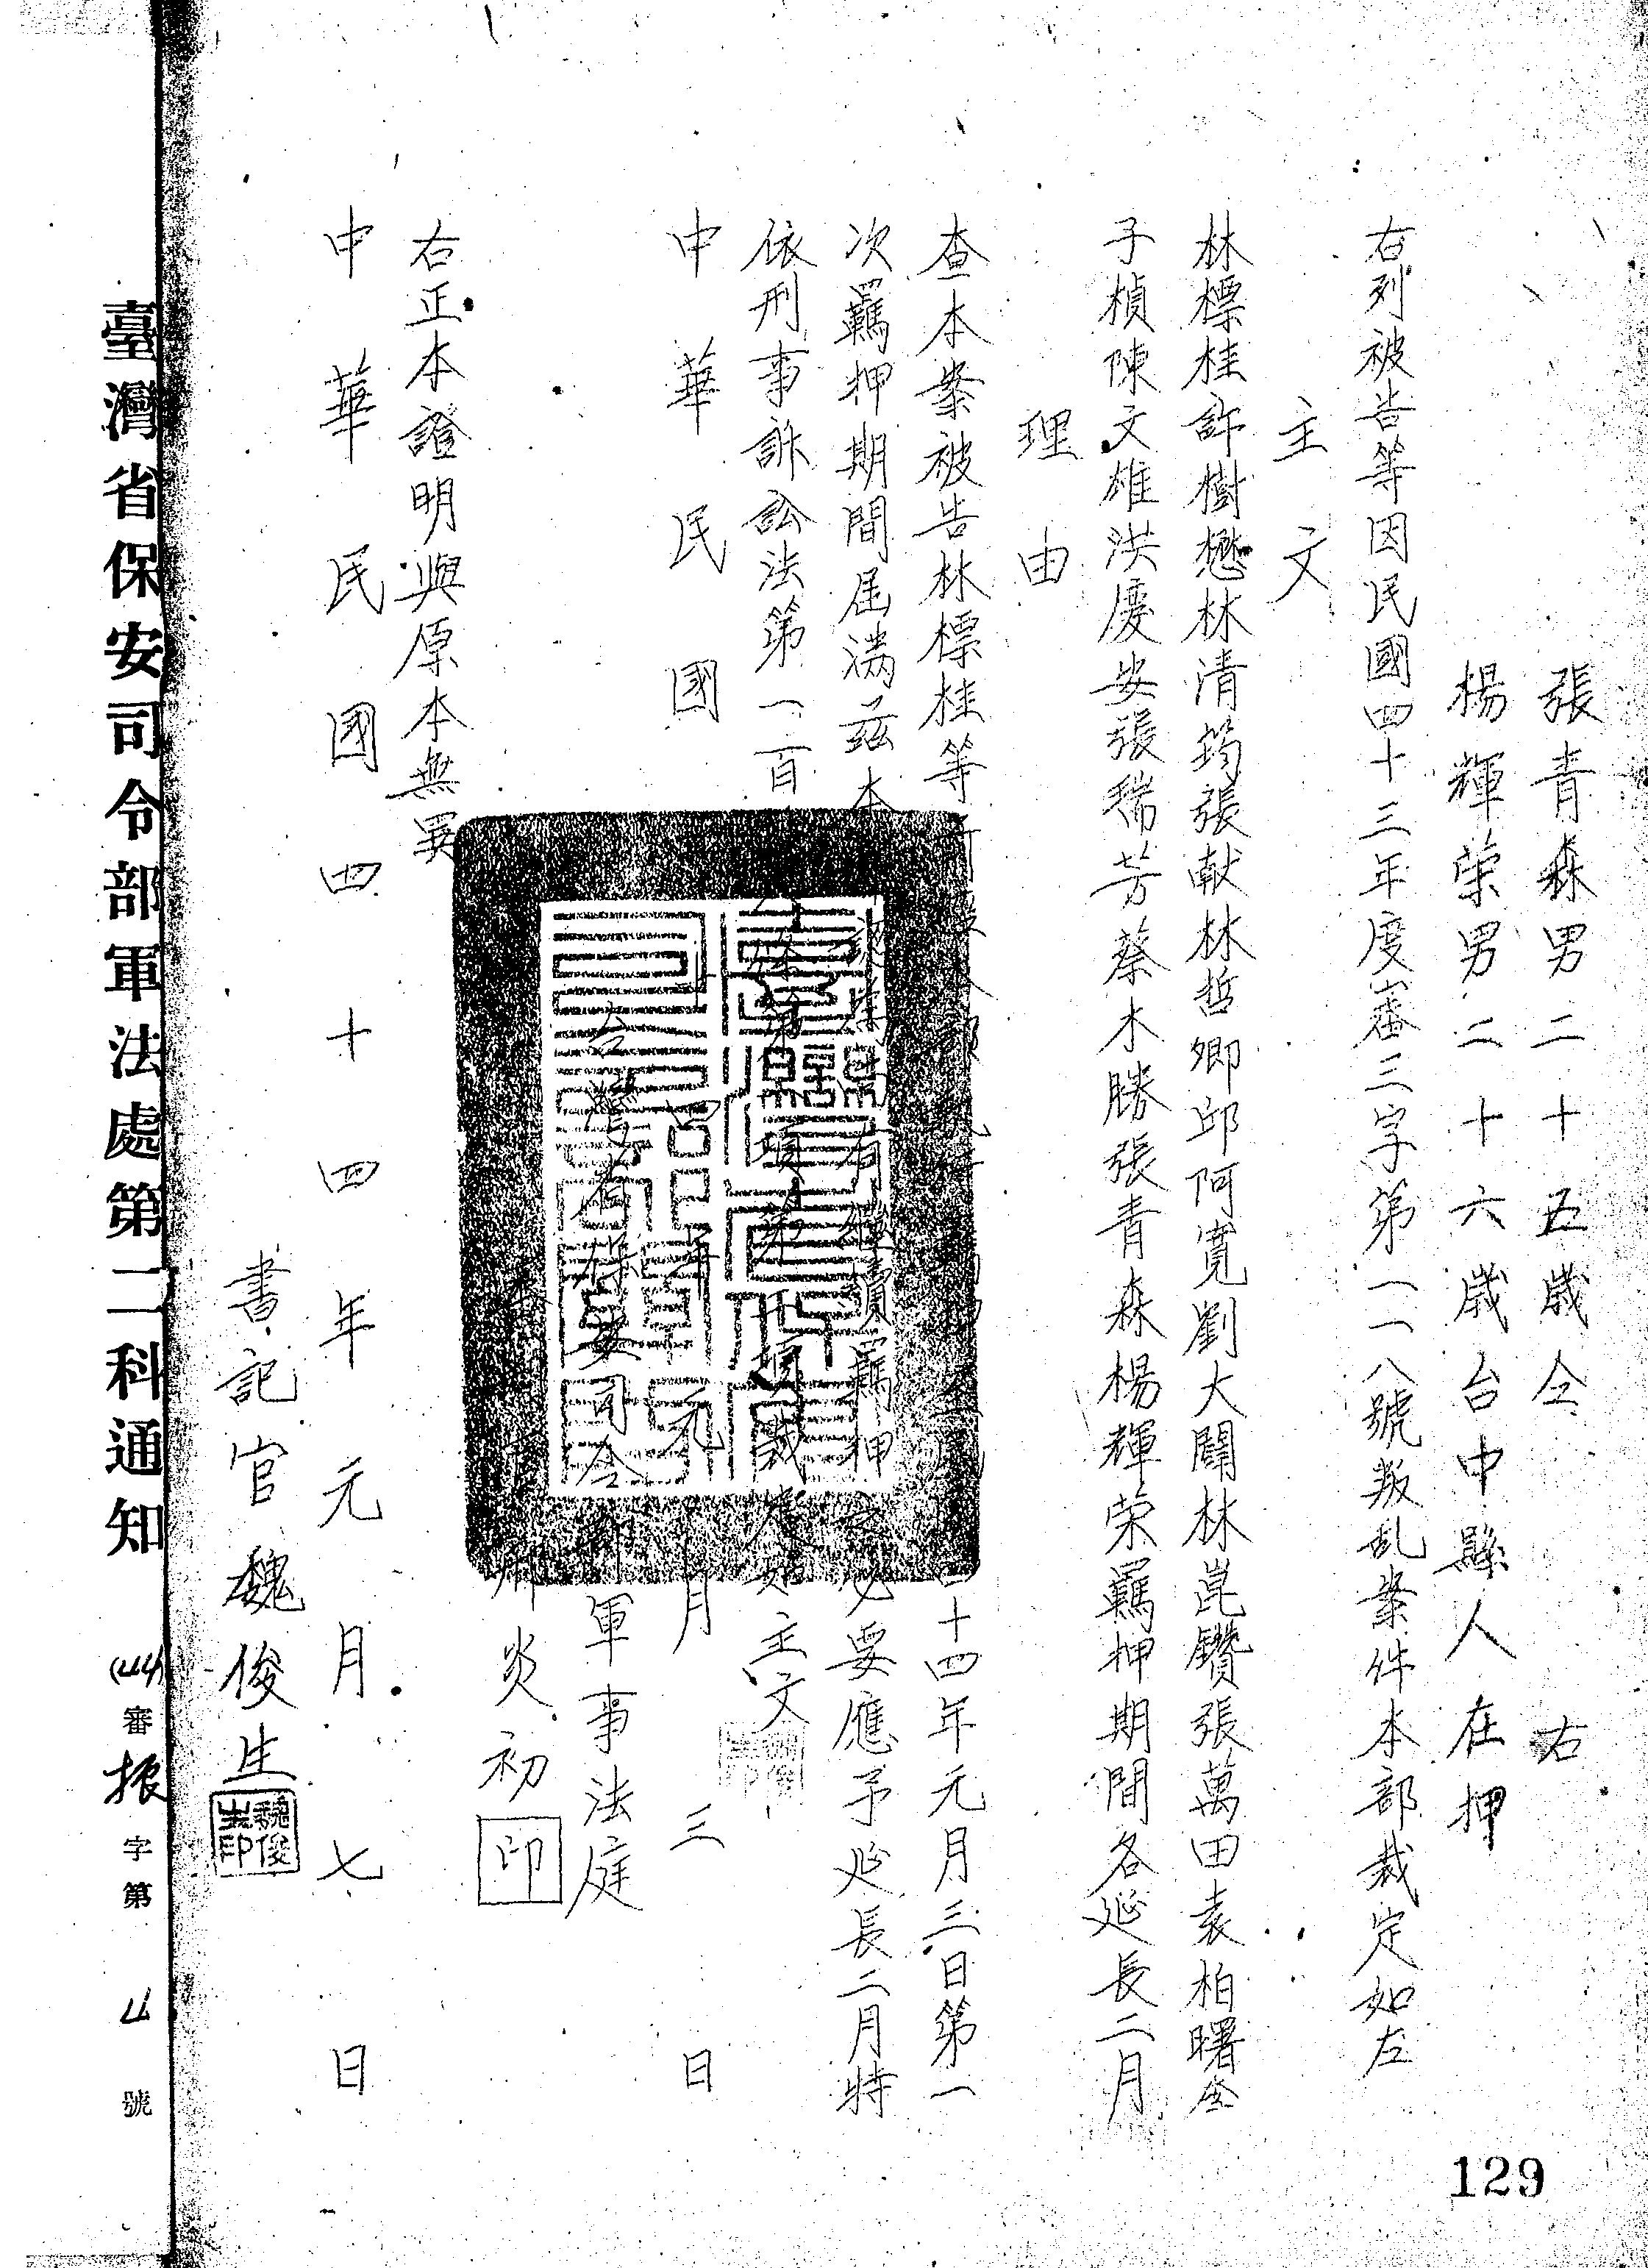 張青森男二十五歲仝右
楊輝荣男二十六歲台中縣人在押
右列被告等因民國四十三年度審三字第一一八號叛乱案件本部裁定如左
主文
林標桂許樹懋林清筠張献林哲卿邱阿寬劉大闢林崑鑽張萬田袁柏曙金
子楨陳文雄洪慶安張瑞芳蔡木勝張青森楊輝荣羈押期間各延長二月
理由
查本案被告林標桂等 十四年元月三日第一
次羈押期間屆滿茲本 有繼續羈押之必要應予延長二月特
依刑事訴訟法第一百 條第 項第 項裁定如主文
中華民國四十四年元月三日
台灣省保安司令部軍事法庭
炎初
印
右正本證明與原本無異
中華民國四十四年元月七日
書記官魏俊生
魏俊生印
臺灣省保安司令部軍法處第二科通知 (44)審振字第 號
129